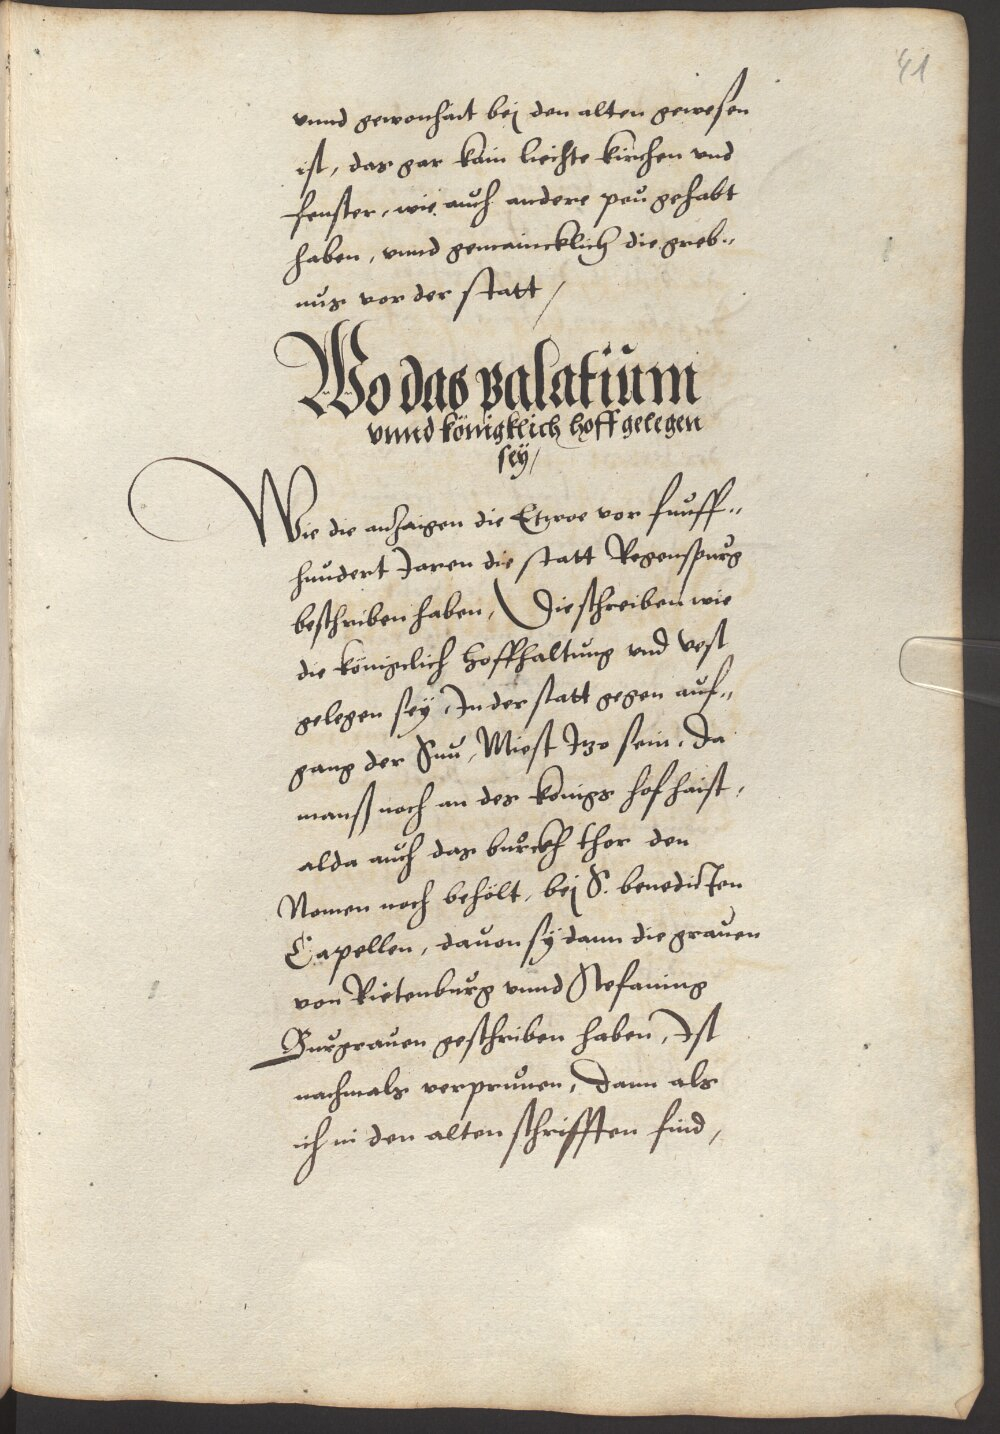 41
vnnd gewonhait bej den alten gewesen
ist, das gar kain liechte kirchen vnd
fenster, wie auch andere peu gehabt
haben, vnnd gemaincklich die greb„
nus vor der statt /
Wo das palatium
vnnd königklich hoff gelegen
seÿ /
Wie die anzaigen die Etwo vor funff„
hundert Jaren die statt Regenspurg
beschriben haben, Die schreiben wie
die königclich hoffhaltung vnd vest
gelegen seÿ, In der statt gegen auf„
gang der Sun, Miest Itzo sein, Da
manß noch an des königs hof haist,
alda auch das burckh thor den
Nomen noch behölt, bej S. benedicten
Capellen, dauon sÿ dann die grauen
von Rietenburg vnnd Stefaning
Burgrauen geschriben haben, Ist
nachmals verprunen, Dann als
ich in den alten schrifften find,